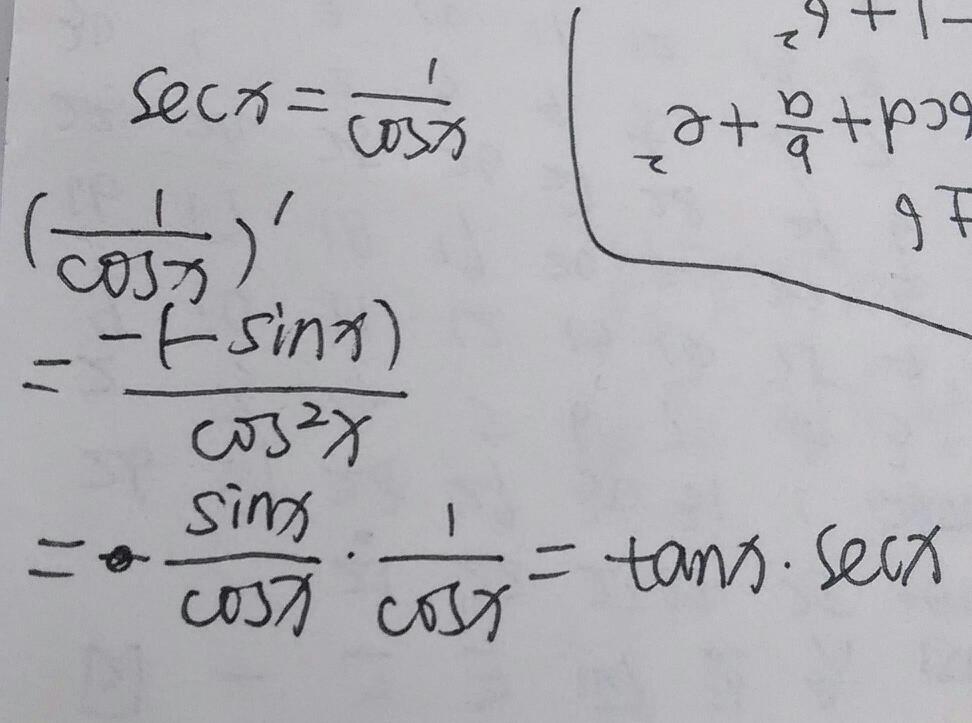 secx = 1/cosx
(1/cosx)'
= -(-sinx)/cos²x
= sinx/cosx · 1/cosx = tanx · secx